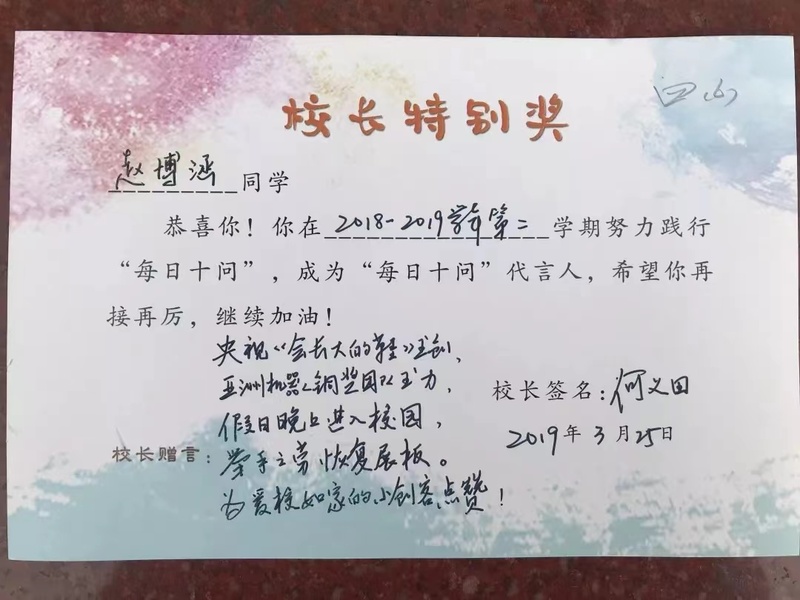 四(6)
校长特别奖
赵博涵同学
恭喜你！你在2018-2019学年第二学期努力践行
“每日十问”，成为“每日十问”代言人，希望你再
接再厉，继续加油！
央视《会长大的鞋》主创、
亚洲机器人铜奖团队主力，
假日晚上进入校园，
校长赠言：举手之劳恢复展板。
为爱校如家的小创客点赞！
校长签名：何义田
2019年3月25日